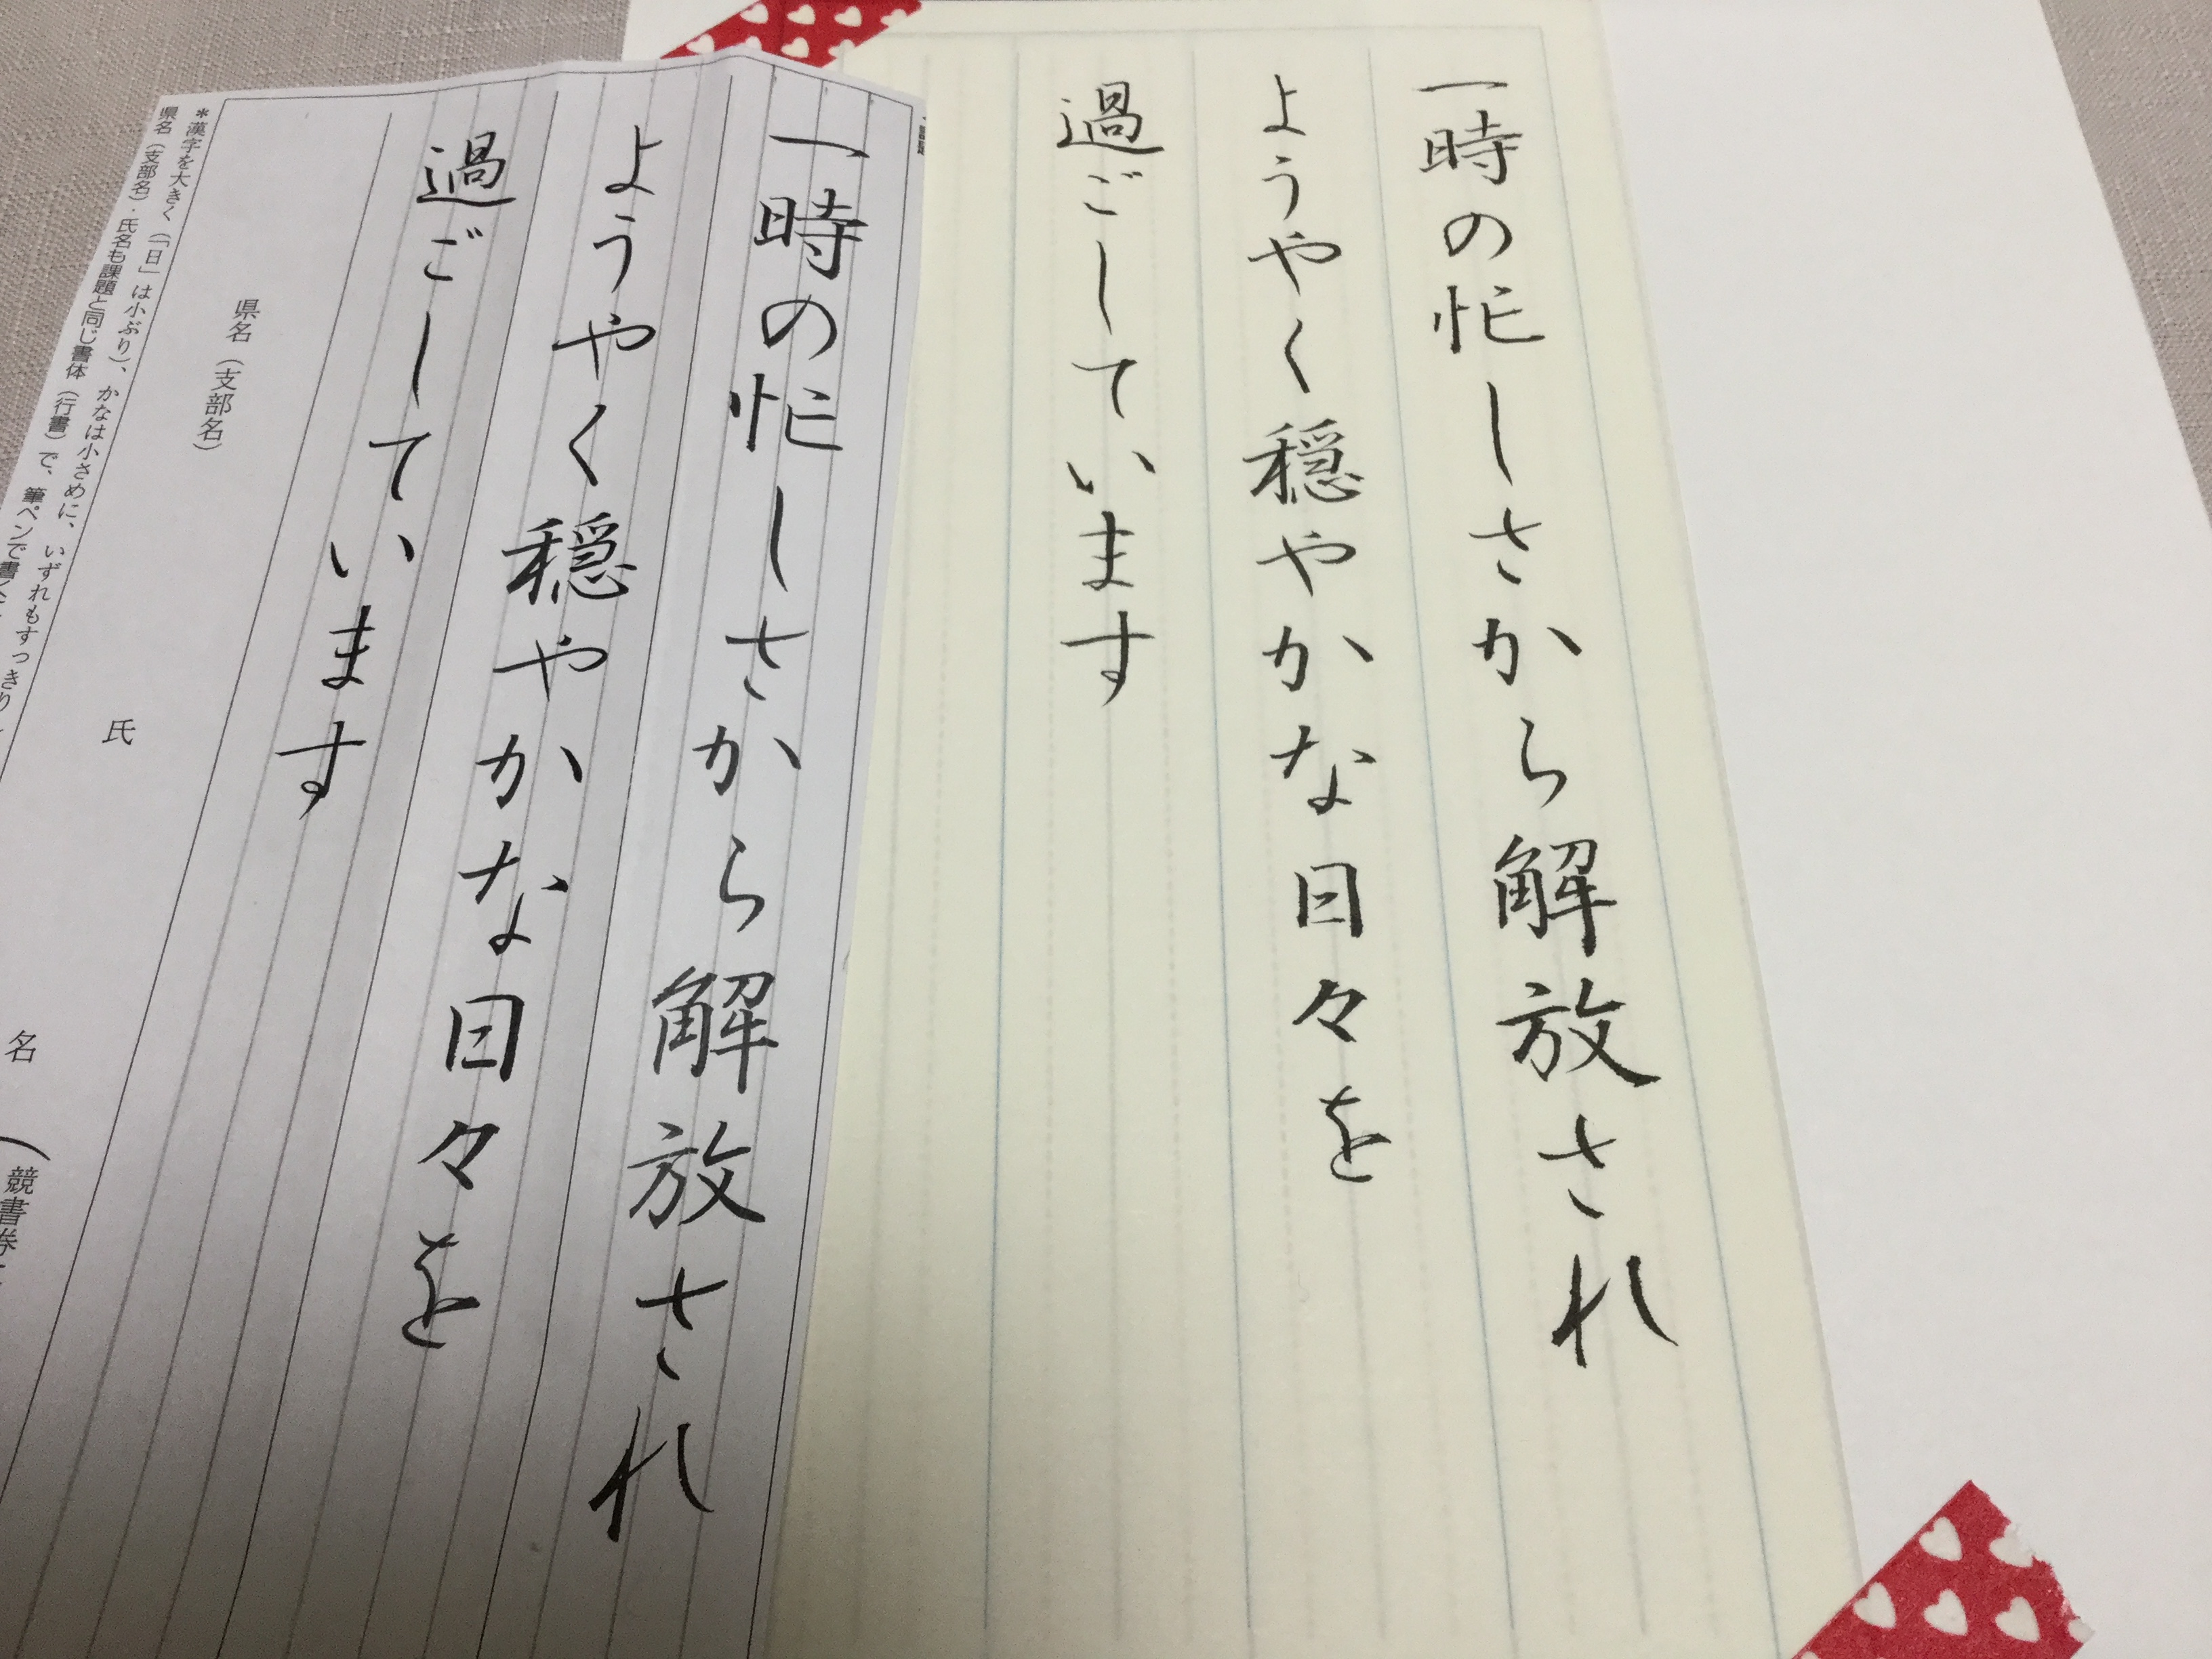 一時の忙しさから解放され
ようやく穏やかな日々を
過ごしています
一時の忙しさから解放され
ようやく穏やかな日々を
過ごしています
県名（支部名）
氏
名
（競書券
＊漢字を大きく（「日」は小ぶり）、かなは小さめに、いずれもすっきり
県名（支部名）・氏名も課題と同じ書体（行書）で、筆ペンで書く